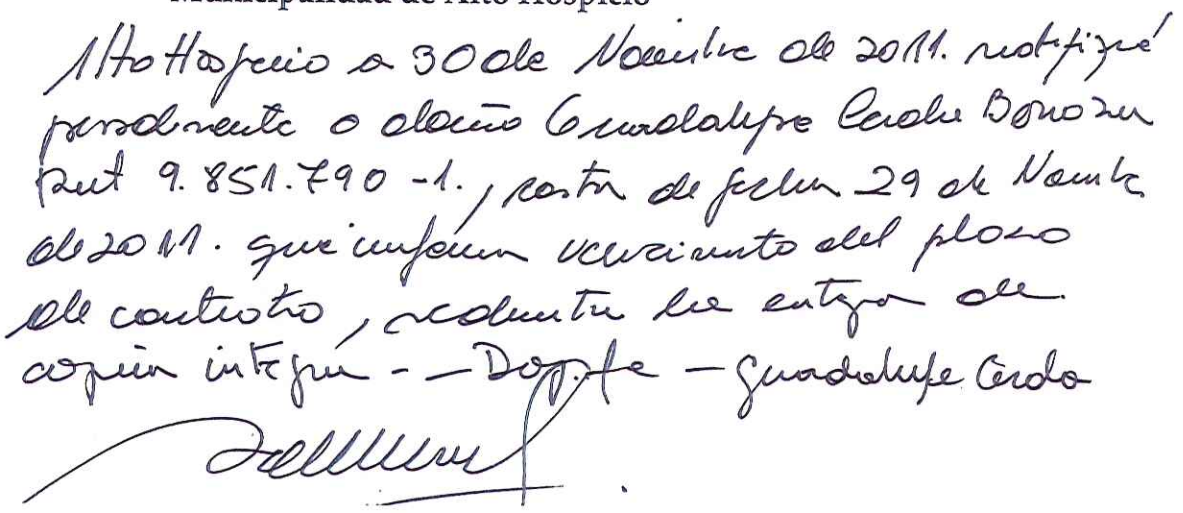 Municipalidad de Alto Hospicio
Alto Hospicio a 30 de Noviembre de 2011. notifiqué
personalmente a doña Guadalupe Cerda
Rut 9.851.790-1., carta de fecha 29 de Noviembre
de 2011. que informa vencimiento del plazo
de contrato, mediante la entrega de
copia íntegra - - Doy fe - Guadalupe Cerda